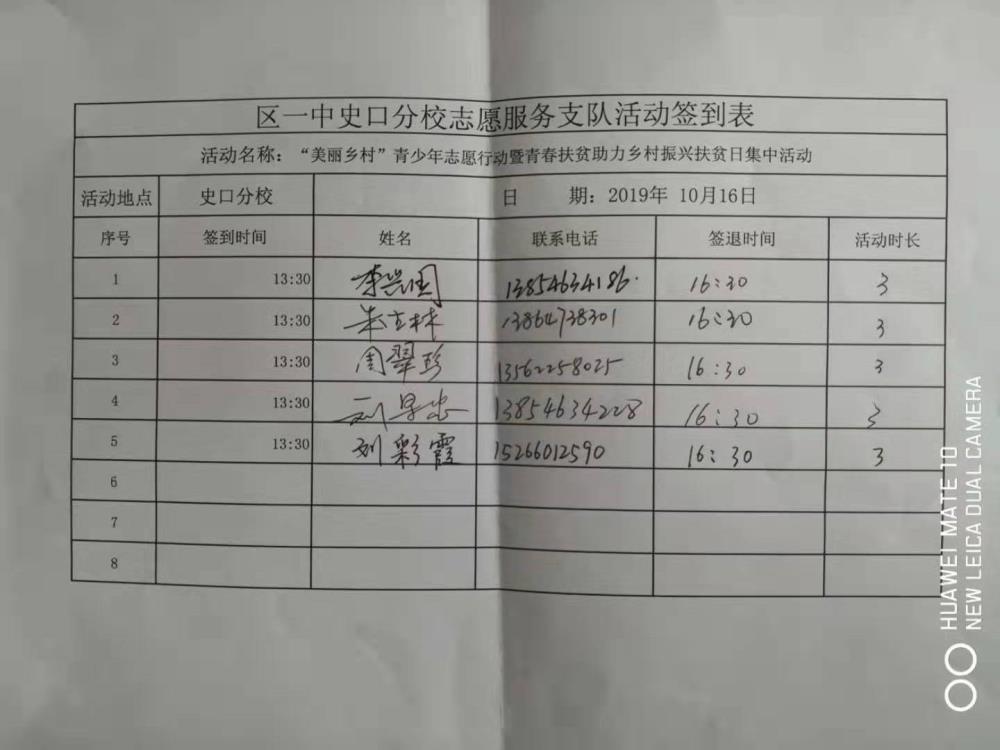 区一中史口分校志愿服务支队活动签到表
活动名称：“美丽乡村”青少年志愿行动暨青春扶贫助力乡村振兴扶贫日集中活动
活动地点 史口分校 日 期：2019年 10月16日
序号 签到时间 姓名 联系电话 签退时间 活动时长
1 13:30 李兴国 13854634186 16:30 3
2 13:30 朱立林 13864738301 16:30 3
3 13:30 周翠珍 13562258025 16:30 3
4 13:30 刘 13854634228 16:30 3
5 13:30 刘彩霞 15266012590 16:30 3
6
7
8
HUAWEI MATE 10
NEW LEICA DUAL CAMERA